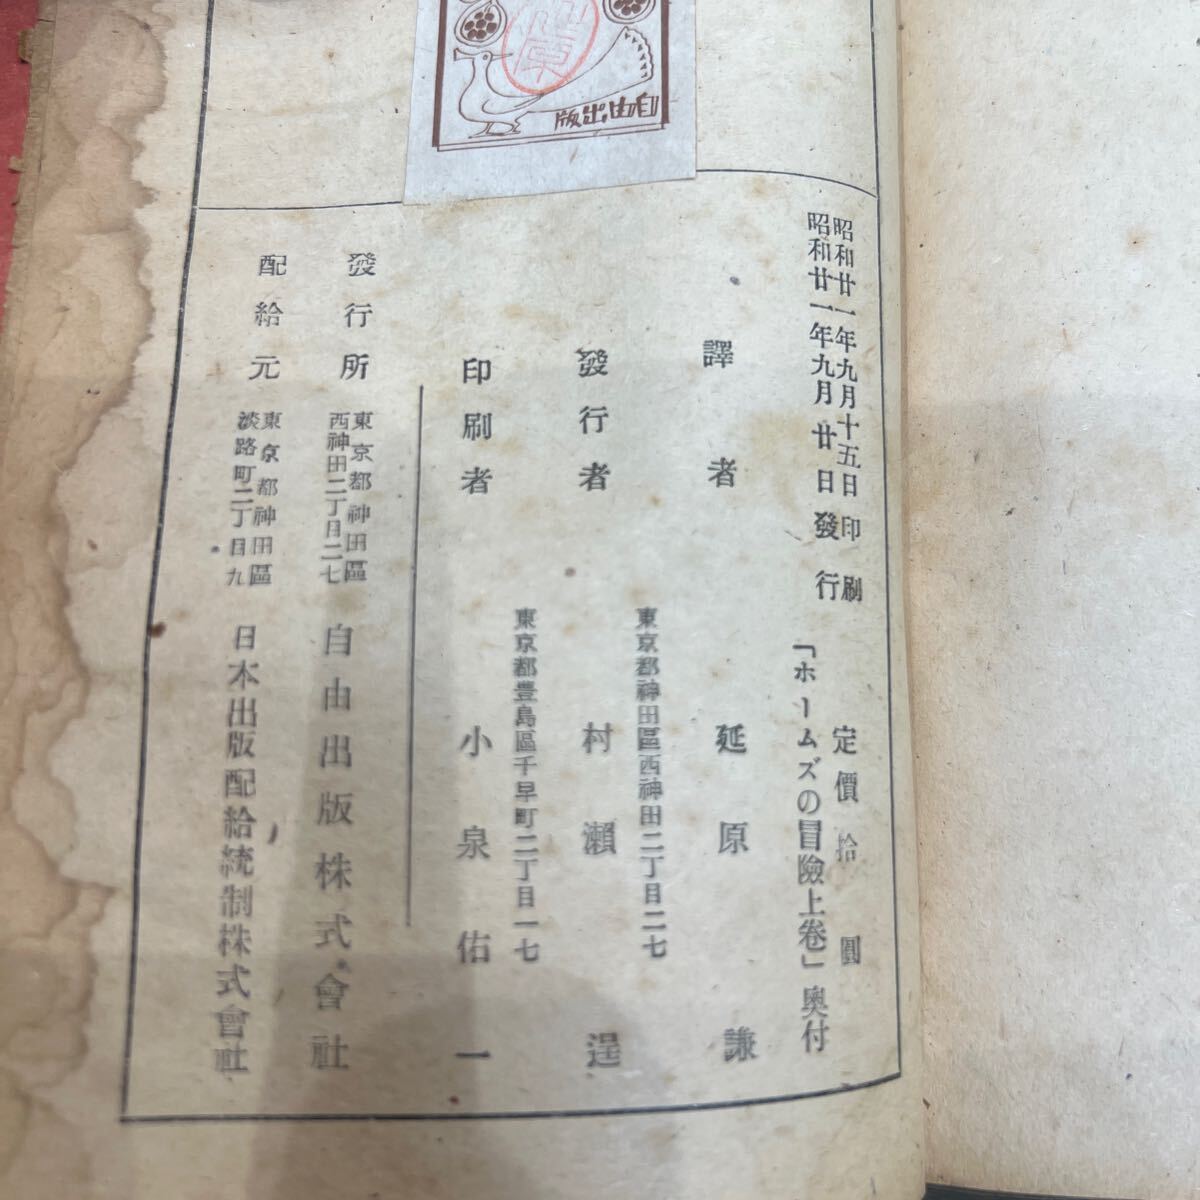 自由出版
昭和廿一年九月十五日印刷
昭和廿一年九月廿日發行
定價拾圓
「ホームズの冒險上卷」奧付
譯者 延原謙
東京都神田區西神田二丁目二七
發行者 村瀨逞
東京都豊島區千早町二丁目一七
印刷者 小泉佑一
發行所
東京都神田區
西神田二丁目二七
自由出版株式會社
配給元
東京都神田區
淡路町二丁目九
日本出版配給統制株式會社